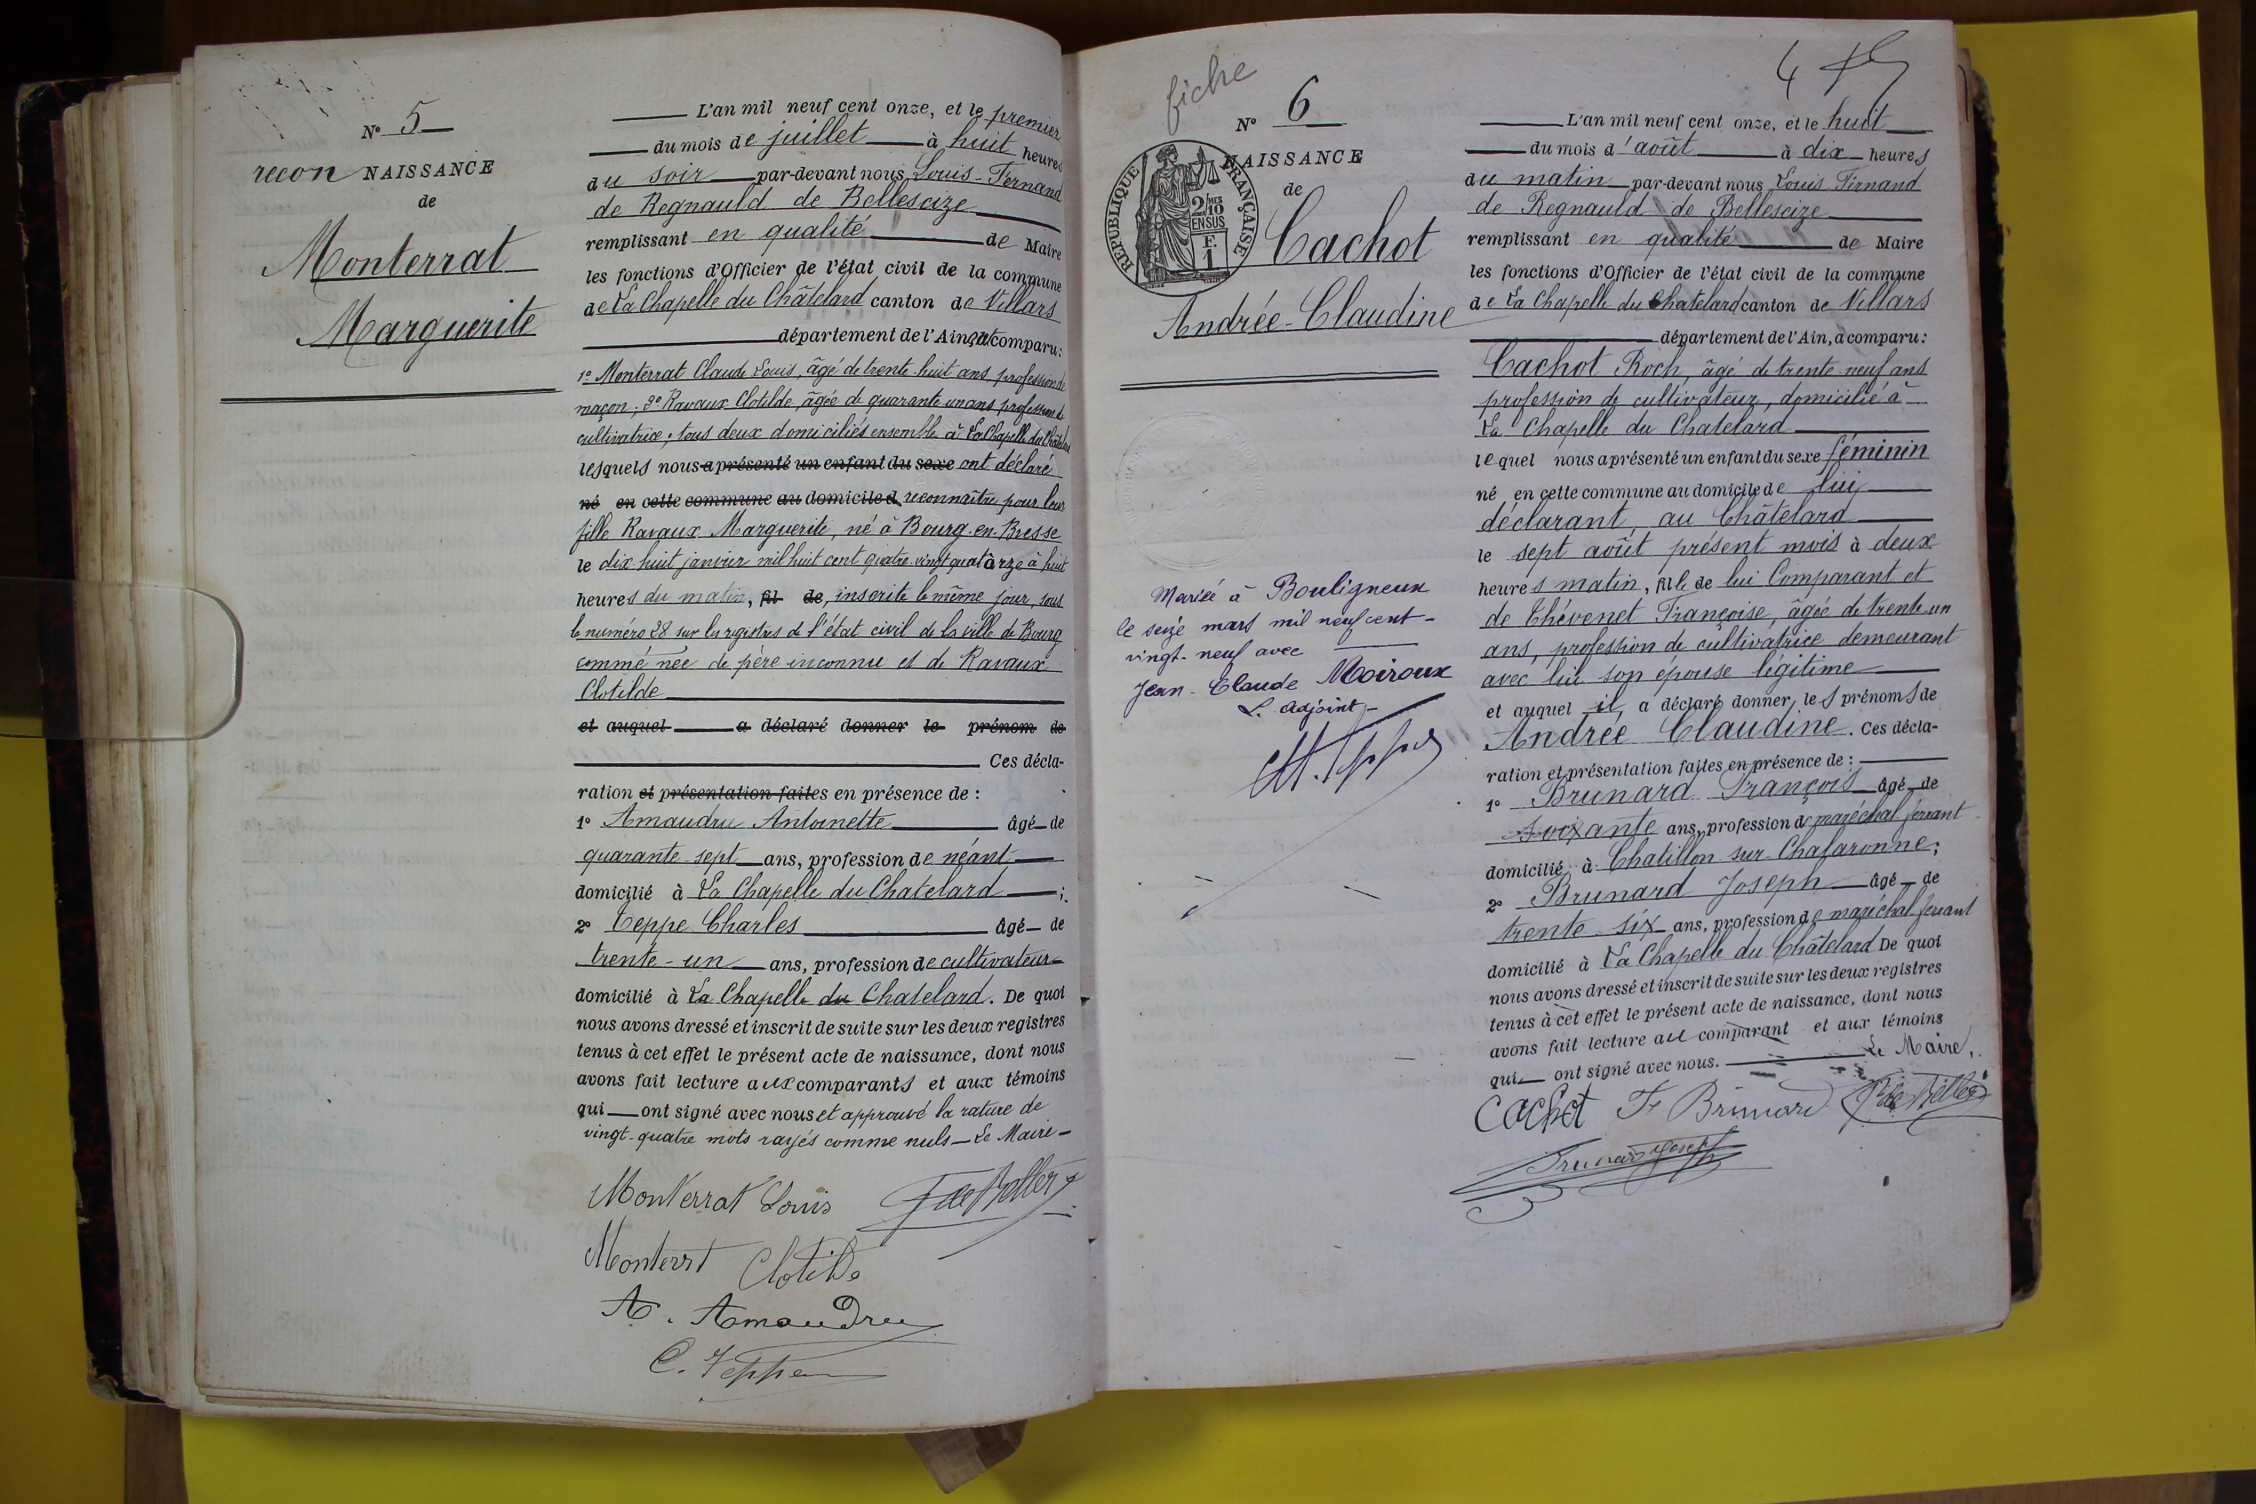 N° 5
recon NAISSANCE
de
Monterrat
Marguerite
L'an mil neuf cent onze, et le premier
du mois de juillet à huit heures
du soir par-devant nous Louis-Fernand
de Regnauld de Bellescize
remplissant en qualité de Maire
les fonctions d'Officier de l'état civil de la commune
de La Chapelle du Châtelard canton de Villars
département de l'Ain, ont comparu:
1° Monterrat Claude Louis, âgé de trente-huit ans, profession de
maçon; 2° Ravaux Clotilde, âgée de quarante un ans profession de
cultivatrice; tous deux domiciliés ensemble à La Chapelle du Châtelard
lesquels nous a présenté un enfant du sexe ont déclaré
né en cette commune au domicile d reconnaître pour leur
fille Ravaux Marguerite, né à Bourg-en-Bresse
le dix huit janvier mil huit cent quatre-vingt quatorze à huit
heures du matin, fil de, inscrite le même jour, sous
le numéro 28 sur les registres de l'état civil de la ville de Bourg
comme née de père inconnu et de Ravaux
Clotilde
et auquel a déclaré donner le prénom de
Ces décla-
ration et présentation faites en présence de :
1° Amaudru Antoinette âgé de
quarante-sept ans, profession de néant
domicilié à La Chapelle du Chatelard ;
2° Teppe Charles âgé de
trente-un ans, profession de cultivateur
domicilié à La Chapelle du Chatelard. De quoi
nous avons dressé et inscrit de suite sur les deux registres
tenus à cet effet le présent acte de naissance, dont nous
avons fait lecture aux comparants et aux témoins
qui ont signé avec nous et approuvé la rature de
vingt-quatre mots rayés comme nuls - Le Maire -
Monterrat Louis
Monterrat Clotilde
A. Amaudru
C. Teppe
fiche
4
N° 6
NAISSANCE
de
RÉPUBLIQUE FRANÇAISE
2/10 MES
EN SUS
1 F.
Cachot
Andrée-Claudine
Mariée à Bouligneux
le seize mars mil neuf cent-
vingt-neuf avec
Jean-Claude Moiroux
L'adjoint-
L'an mil neuf cent onze, et le huit
du mois d'août à dix heures
du matin par-devant nous Louis Fernand
de Regnauld de Bellescize
remplissant en qualité de Maire
les fonctions d'Officier de l'état civil de la commune
de La Chapelle du Chatelard canton de Villars
département de l'Ain, a comparu:
Cachot Roch, âgé de trente neuf ans
profession de cultivateur, domicilié à
La Chapelle du Chatelard
lequel nous a présenté un enfant du sexe féminin
né en cette commune au domicile de lui
déclarant, au Châtelard
le sept août présent mois à deux
heures matin, fille de lui Comparant et
de Thévenet Françoise, âgée de trente-un
ans, profession de cultivatrice demeurant
avec lui son épouse légitime
et auquel il a déclaré donner les prénoms de
Andrée Claudine. Ces décla-
ration et présentation faites en présence de :
1° Brunard François âgé de
soixante ans, profession de maréchal ferrant
domicilié à Chatillon sur Chalaronne;
2° Brunard Joseph âgé de
trente-six ans, profession de maréchal ferrant
domicilié à La Chapelle du Châtelard De quoi
nous avons dressé et inscrit de suite sur les deux registres
tenus à cet effet le présent acte de naissance, dont nous
avons fait lecture au comparant et aux témoins
qui ont signé avec nous. Le Maire,
Cachot Fs Brunard
Brunard Joseph